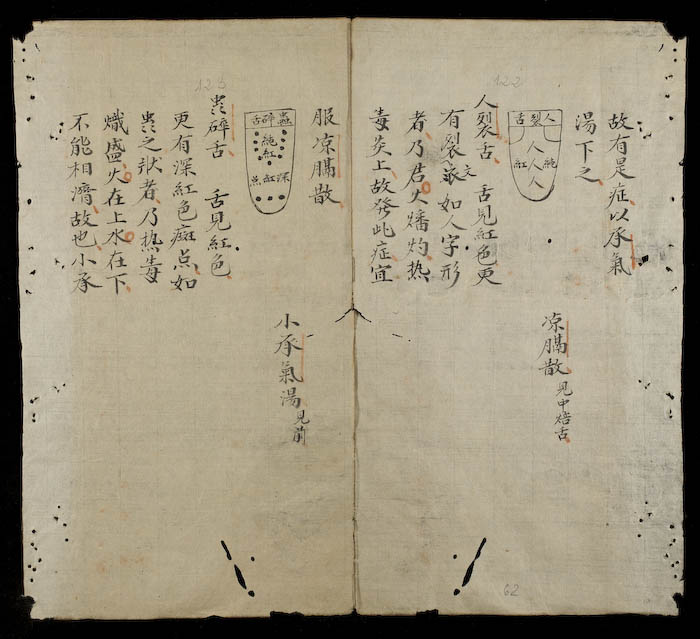 122
故有是症以承氣
湯下之
人裂舌
純紅
人人人
人裂舌　舌見紅色更
有裂文如人字形
者乃君火燔灼热
毒炎上故發此症宜
凉膈散見中焙舌
62
123
服凉膈散
蟲碎舌
純紅
深紅点
䖝碎舌　舌見紅色
更有深紅色癍点如
䖝之状者乃热毒
熾盛火在上水在下
不能相濟故也小承
小承氣湯見前